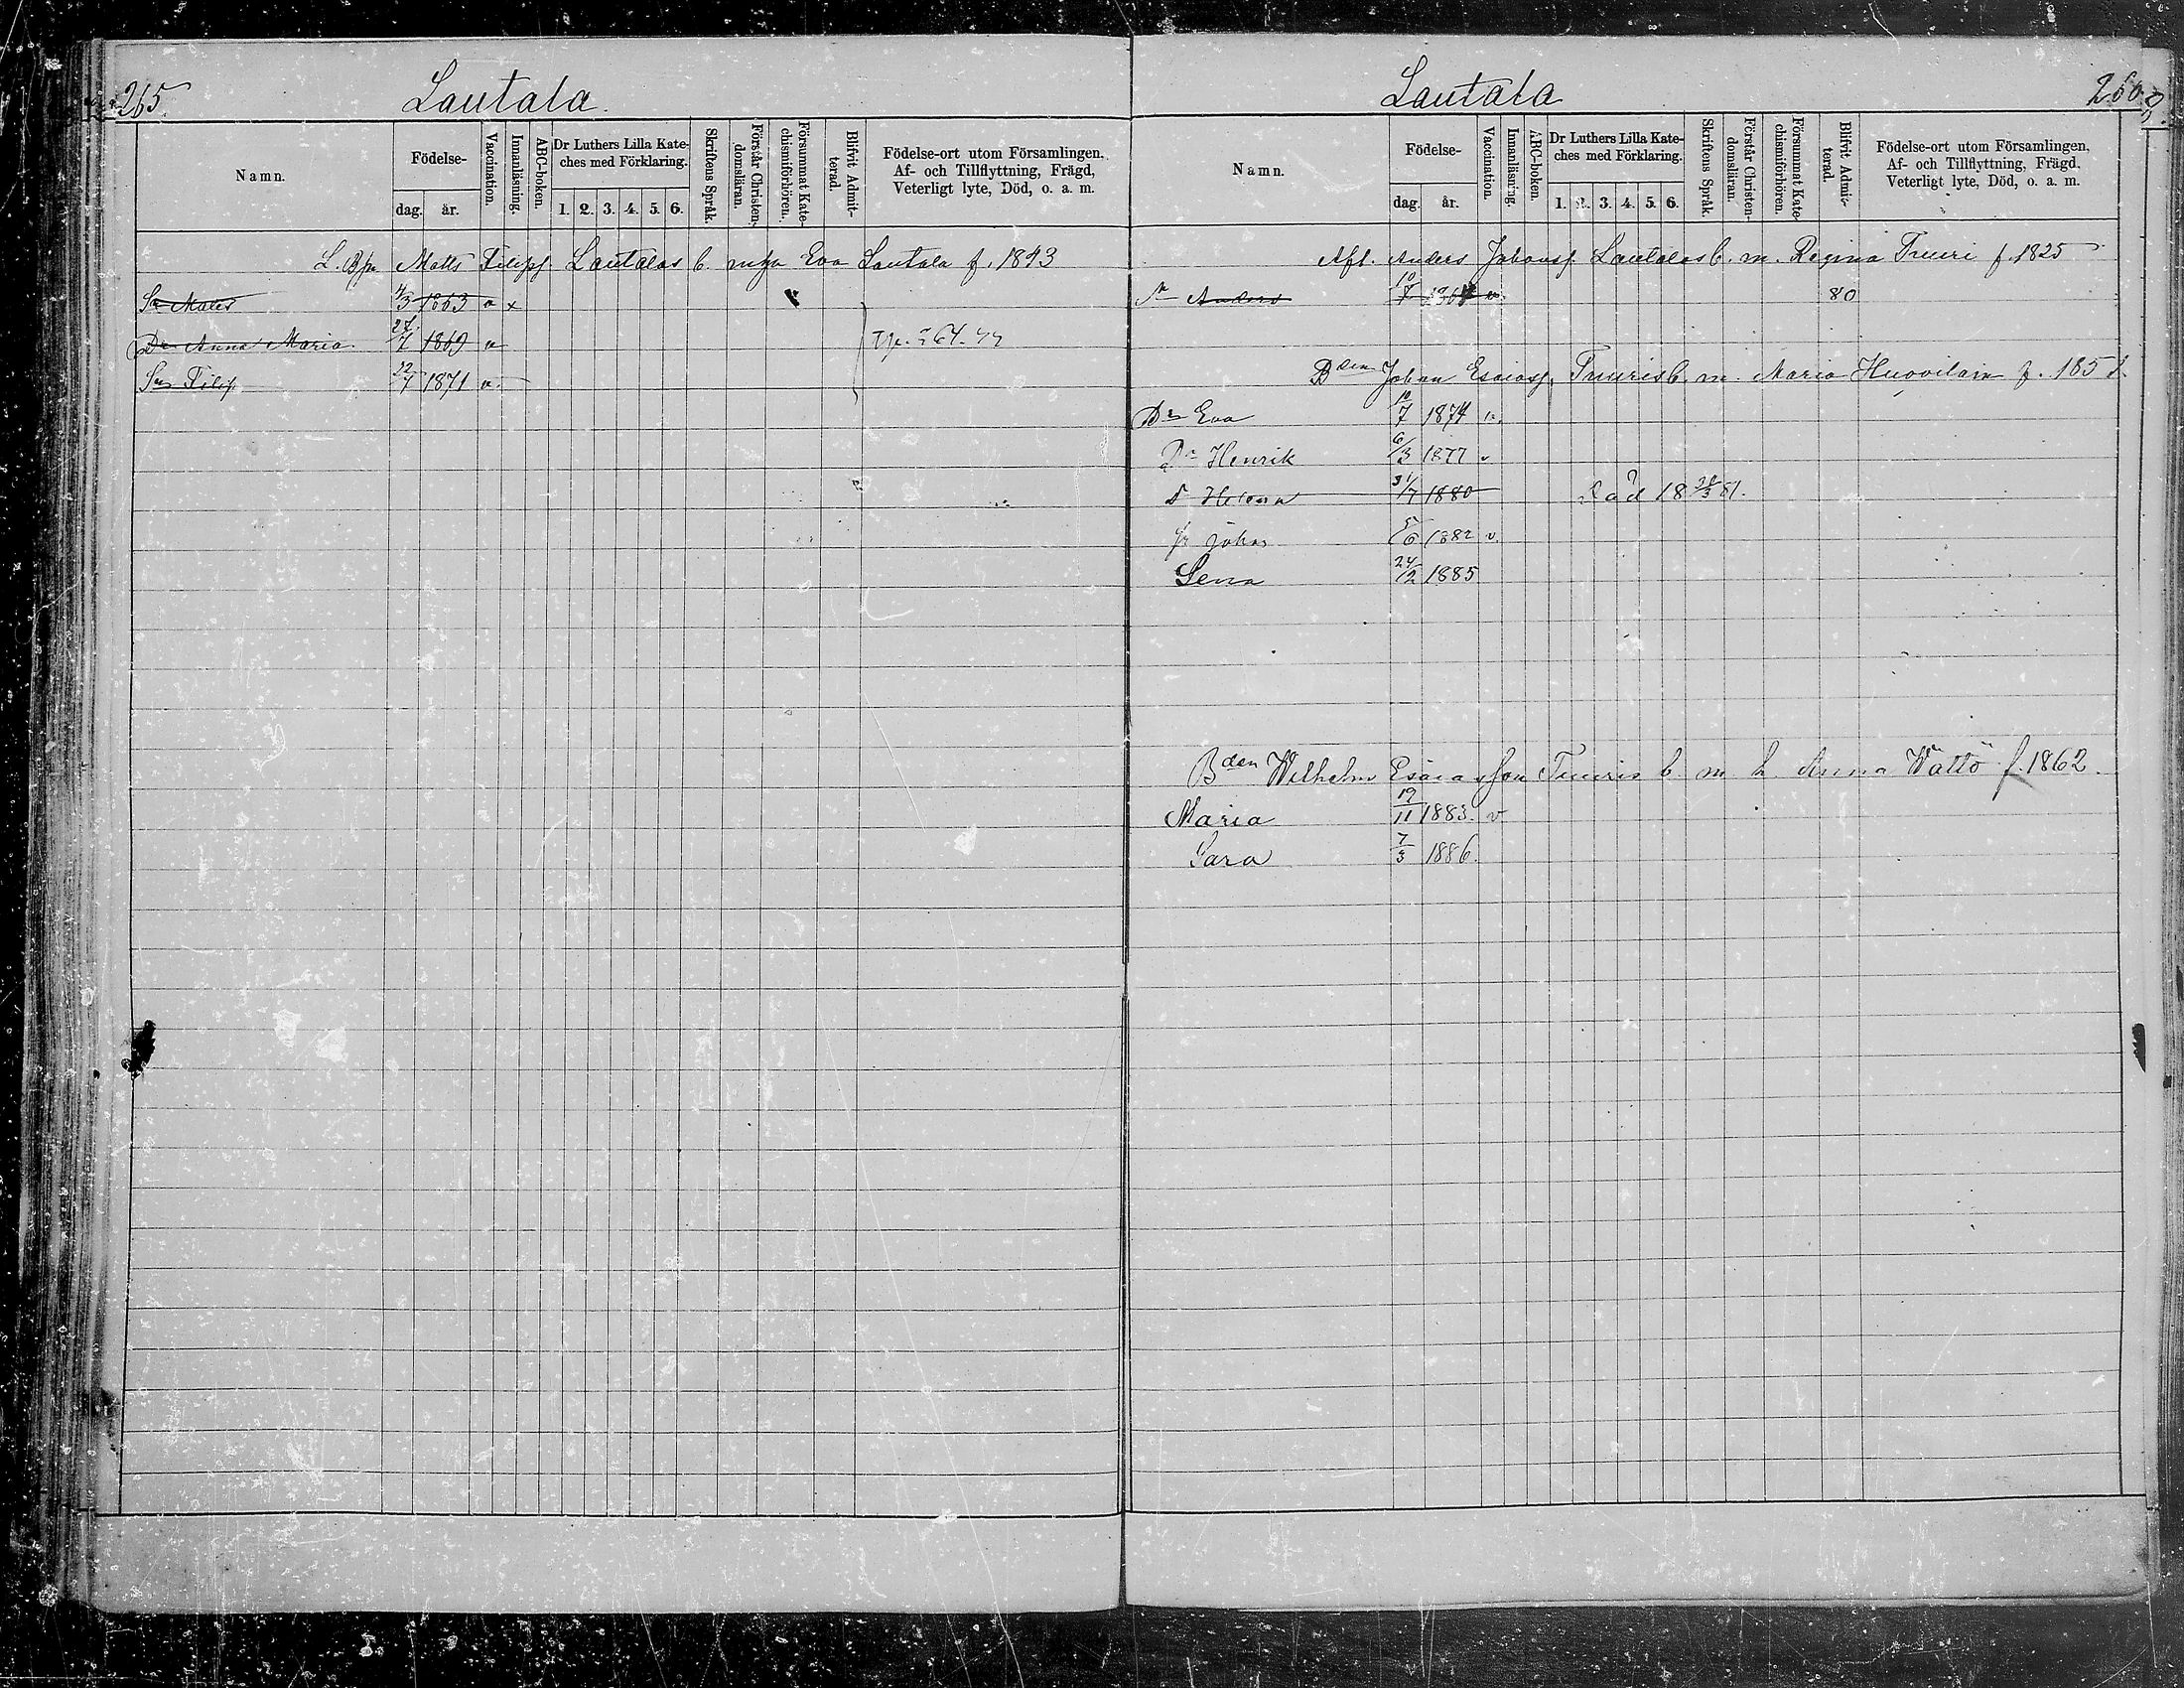 265.
Lautala.
Namn.
Födelse-
dag. år.
Vaccination.
Innanläsning.
ABC-boken.
Dr Luthers Lilla Kateches med Förklaring.
1. 2. 3. 4. 5. 6.
Skriftens Språk.
Förstår Christendomsläran.
Försummat Katechismiförhören.
Blifvit Admitterad.
Födelse-ort utom Församlingen,
Af- och Tillflyttning, Frägd,
Veterligt lyte, Död, o. a. m.
Matts Filipf. Lautalas b. Eva Lautala f. 1843
Sn Matts 4/3 1863 v x
Dr Anna Maria 7 1869 v
Sn Filip 22/7 1871 v
Lautala
Namn.
Födelse-
dag. år.
Vaccination.
Innanläsning.
ABC-boken.
Dr Luthers Lilla Kateches med Förklaring.
1. 2. 3. 4. 5. 6.
Skriftens Språk.
Förstår Christendomsläran.
Försummat Katechismiförhören.
Blifvit Admitterad.
Födelse-ort utom Församlingen,
Af- och Tillflyttning, Frägd,
Veterligt lyte, Död, o. a. m.
Afl. Anders Johansf. Lautalas b. m. Regina Tuuri f. 1825
Anders 80
Bden Johan Esaiasf. Tuuris b. m. Maria Huovilain f.
Dr Eva 10/7 1874 v.
Henrik 6/3 1877 v
Helena 31/7 1880 Död 18 81.
Johan 5/6 1882 v.
Lena 24/12 1885
Bden Wilhelm Esaiasson Tuuris b. m. h. Anna Wättö f. 1862.
Maria 19/11 1883. v
Sara 7/3 1886.